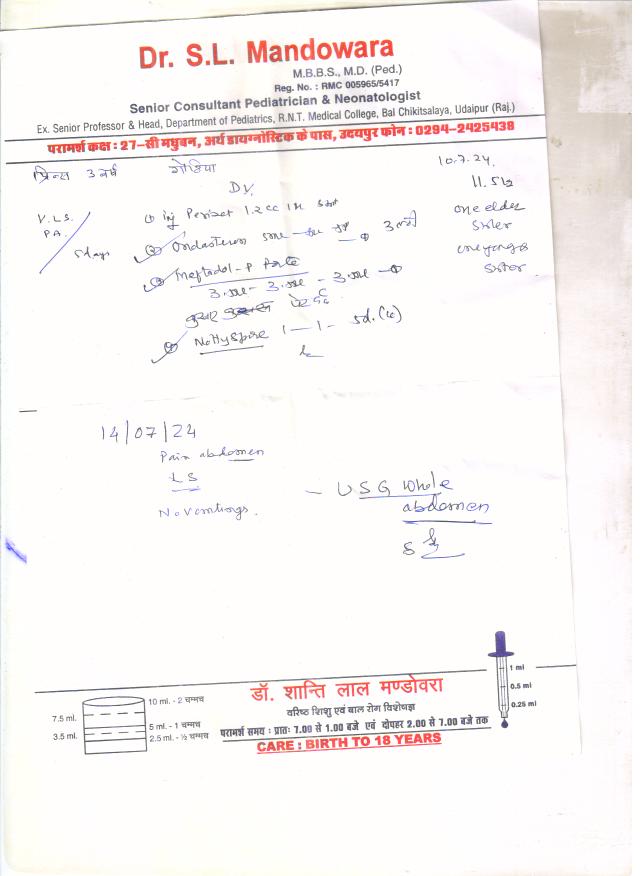 Dr. S.L. Mandowara
M.B.B.S., M.D. (Ped.)
Reg. No. : RMC 005965/5417
Senior Consultant Pediatrician & Neonatologist
Ex. Senior Professor & Head, Department of Pediatrics, R.N.T. Medical College, Bal Chikitsalaya, Udaipur (Raj.)
परामर्श कक्ष : 27-सी मधुबन, अर्थ डायग्नोस्टिक के पास, उदयपुर फोन : 0294-2425438
प्रिन्स 3 वर्ष
10.7.24
11.5
one elder
sister
one younger
sister
P.A.
5 days
inj 1.2 cc IM
3
Meftadol-P
3 - 3 - 3
1 - 1 - 5d.
14/07/24
Pain abdomen
LS
No Vomtings.
- USG Whole
abdomen
10 ml. - 2 चम्मच
7.5 ml.
5 ml - 1 चम्मच
3.5 ml.
2.5 ml - ½ चम्मच
डॉ. शान्ति लाल मण्डोवरा
वरिष्ठ शिशु एवं बाल रोग विशेषज्ञ
परामर्श समय : प्रातः 7.00 से 1.00 बजे एवं दोपहर 2.00 से 7.00 बजे तक
CARE : BIRTH TO 18 YEARS
1 ml
0.5 ml
0.25 ml